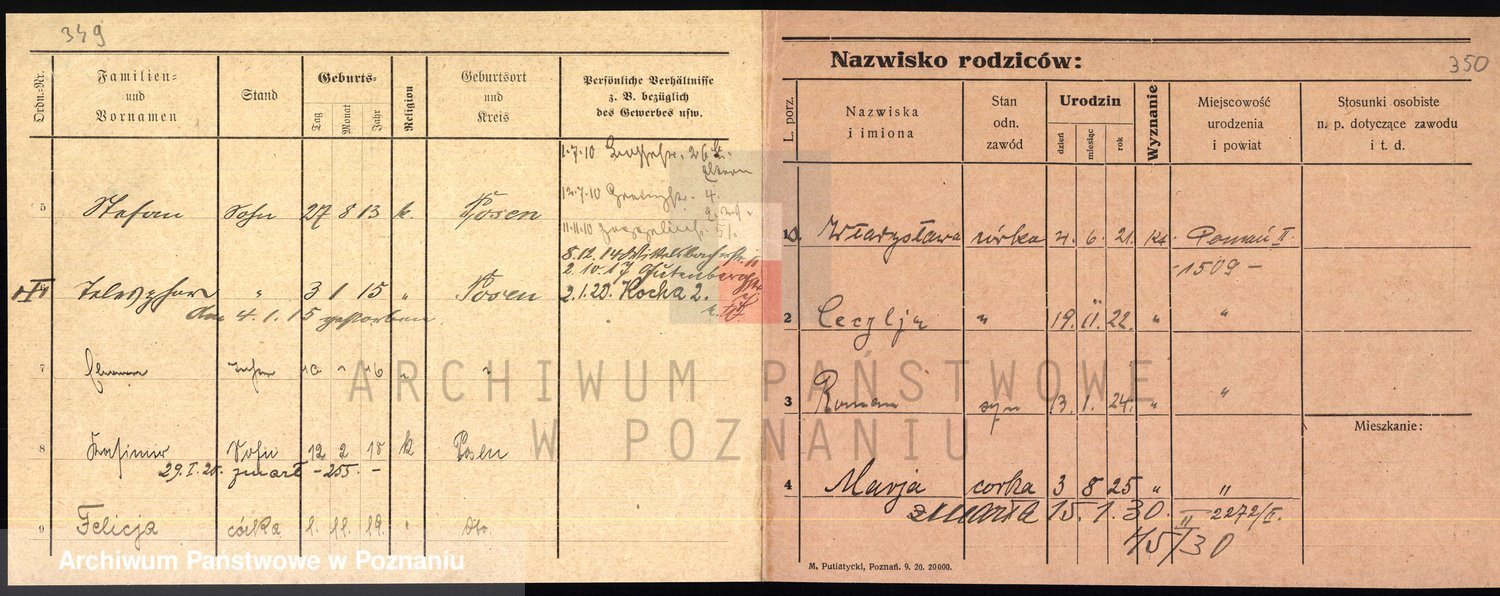 349
Ordn.-Nr.
Familien-
und
Vornamen
Stand
Geburts-
Tag
Monat
Jahr
Religion
Geburtsort
und
Kreis
Persönliche Verhältnisse
z. B. bezüglich
des Gewerbes usw.
1.7.10
Eltern
12.7.10 4.
11.11.10
5 Stefan Sohn 27 8 13 k. Posen
8.12.14 Wittelsbacherstr.
2.10.17 Gutenbergstr.
2.1.20. Kocha 2.
Telesphor " 3 1 15 " Posen
den 4.1.15 gestorben
7
8 Kasimir Sohn 12 2 18 k Posen
29.I.20. zmarł - 255 -
9 Felicja córka 1. 11. 19. "
Archiwum Państwowe w Poznaniu
ARCHIWUM PAŃSTWOWE
W POZNANIU
350
Nazwisko rodziców:
L. porz.
Nazwiska
i imiona
Stan
odn.
zawód
Urodzin
dzień
miesiąc
rok
Wyznanie
Miejscowość
urodzenia
i powiat
Stosunki osobiste
n. p. dotyczące zawodu
i t. d.
10. Władysława córka 4. 6. 21. kt. Poznań II
-1509-
2 Cecylja " 19. 11. 22. " "
3 Roman syn 13. 1. 24. " "
Mieszkanie:
4 Marja corka 3 8 25 " "
zmarła 15. 1. 30. 2272/II.
M. Putiatycki, Poznań. 9. 20. 20000.